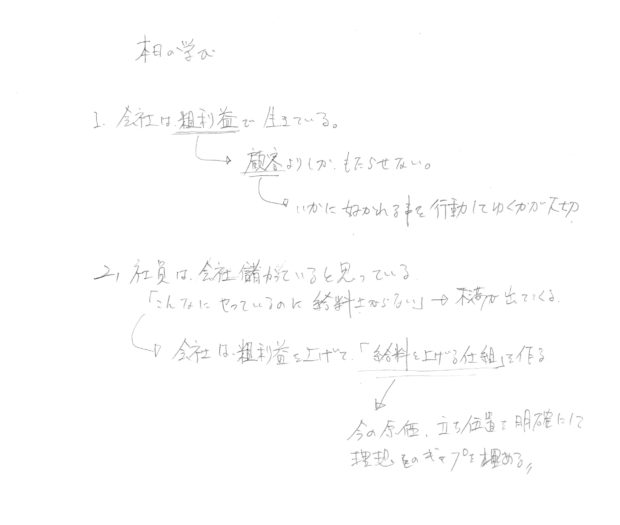 本日の学び
1. 会社は粗利益で生きている。
顧客よりしか、もたらせない。
いかに好かれる事を行動してゆくかが大切
2, 社員は、会社儲かっていると思っている
「こんなにやっているのに給料上がらない」→ 不満が出てくる
会社は粗利益を上げて、「給料を上げる仕組」を作る
今の原価、立ち位置を明確にして
理想とのギャップを埋める〃